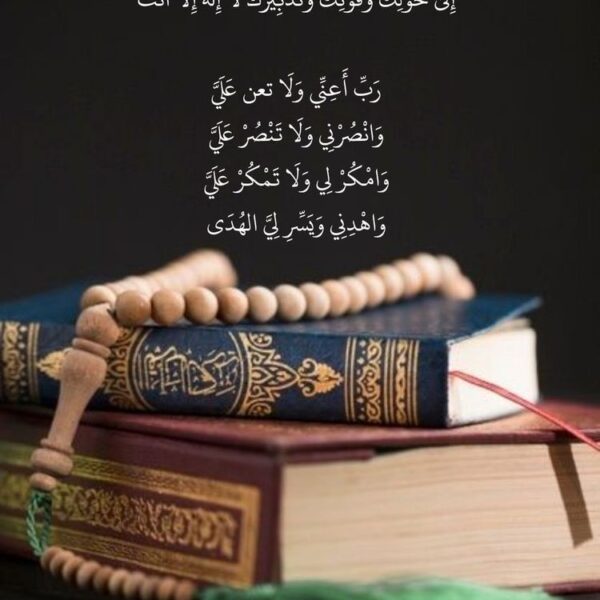 إِلَى حَوْلِكَ وَقُوَّتِكَ وَتَدْبِيرِكَ لَا إِلَهَ إِلَّا أَنْتَ
رَبِّ أَعِنِّي وَلَا تعن عَلَيَّ
وَانْصُرْنِي وَلَا تَنْصُرْ عَلَيَّ
وَامْكُرْ لِي وَلَا تَمْكُرْ عَلَيَّ
وَاهْدِنِي وَيَسِّرِ لِيَّ الهُدَى